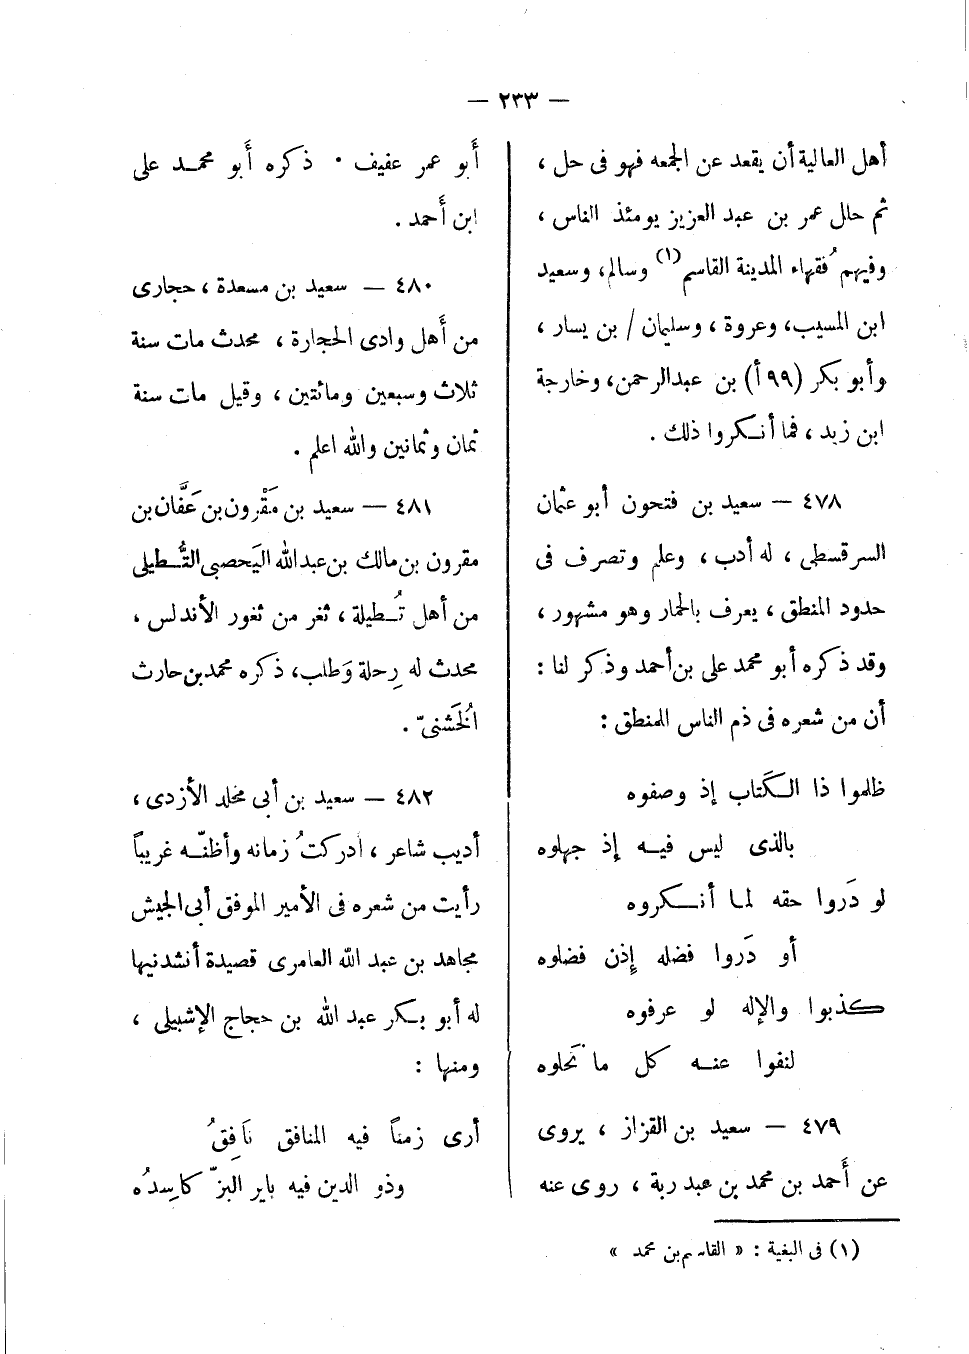 — ٢٣٣ —
أهل العالية أن يقعد عن الجمعه فهو فى حل ،
ثم حال عمر بن عبد العزيز يومئذ الفاس ،
وفيهم ُفقهاء المدينة القاسم(١) وسالم، وسعيد
ابن المسيب، وعروة ، وسليمان / بن يسار ،
وأبو بكر (٩٩ أ) بن عبدالرحمن، وخارجة
ابن زيد ، فما أنـكروا ذلك .
٤٧٨ — سعيد بن فتحون أبو عثمان
السرقسطى ، له أدب ، وعلم وتصرف فى
حدود المنطق ، يعرف بالحمار وهو مشهور ،
وقد ذكره أبو محمد على بن أحمد وذكر لنا :
أن من شعره فى ذم الناس المنطق :
ظلموا ذا الـكَتاب إذ وصفوه
بالذى ليس فيـه إذ جهلوه
لو دَروا حقه لما أنـكروه
أو دَروا فضله إِذن فضلوه
كذبوا والإله لو عرفوه
لنفوا عنـه كل ما نَحلوه
٤٧٩ — سعيد بن القزاز ، يروى
عن أَحمد بن محمد بن عبد ربة ، روى عنه
(١) فى البغية : « القاسم بن محمد »
أَبو عمر عفيف . ذكره أَبو محمـد على
ابن أَحمد .
٤٨٠ — سعيد بن مسعدة ، حجارى
من أَهل وادى الحجارة ، محدث مات سنة
ثلاث وسبعين ومائتين ، وقيل مات سنة
ثمان وثمانين والله اعلم .
٤٨١ — سعيد بن مَقْرون بن عَفَّان بن
مقرون بن مالك بن عبدالله اليَحصبى التُّـطيلى
من أهل تُـطيلة ، ثغر من ثغور الأندلس ،
محدث له رِحلة وَطلب، ذكره محمد بن حارث
الُخَشنىّ .
٤٨٢ — سعيد بن أبى مخلد الأزدى ،
أديب شاعر ، أدركتُ زمانه وأظنّـه غريباً
رأيت من شعره فى الأمير الموفق أبى الجيش
مجاهد بن عبد الله العامرى قصيدة أنشدنيها
له أبو بـكر عبد الله بن حجاج الإشبيلى ،
ومنها :
أرى زمناً فيه المنافق نَافِقُ
وذو الدين فيه باير البزّ كاسِدُه